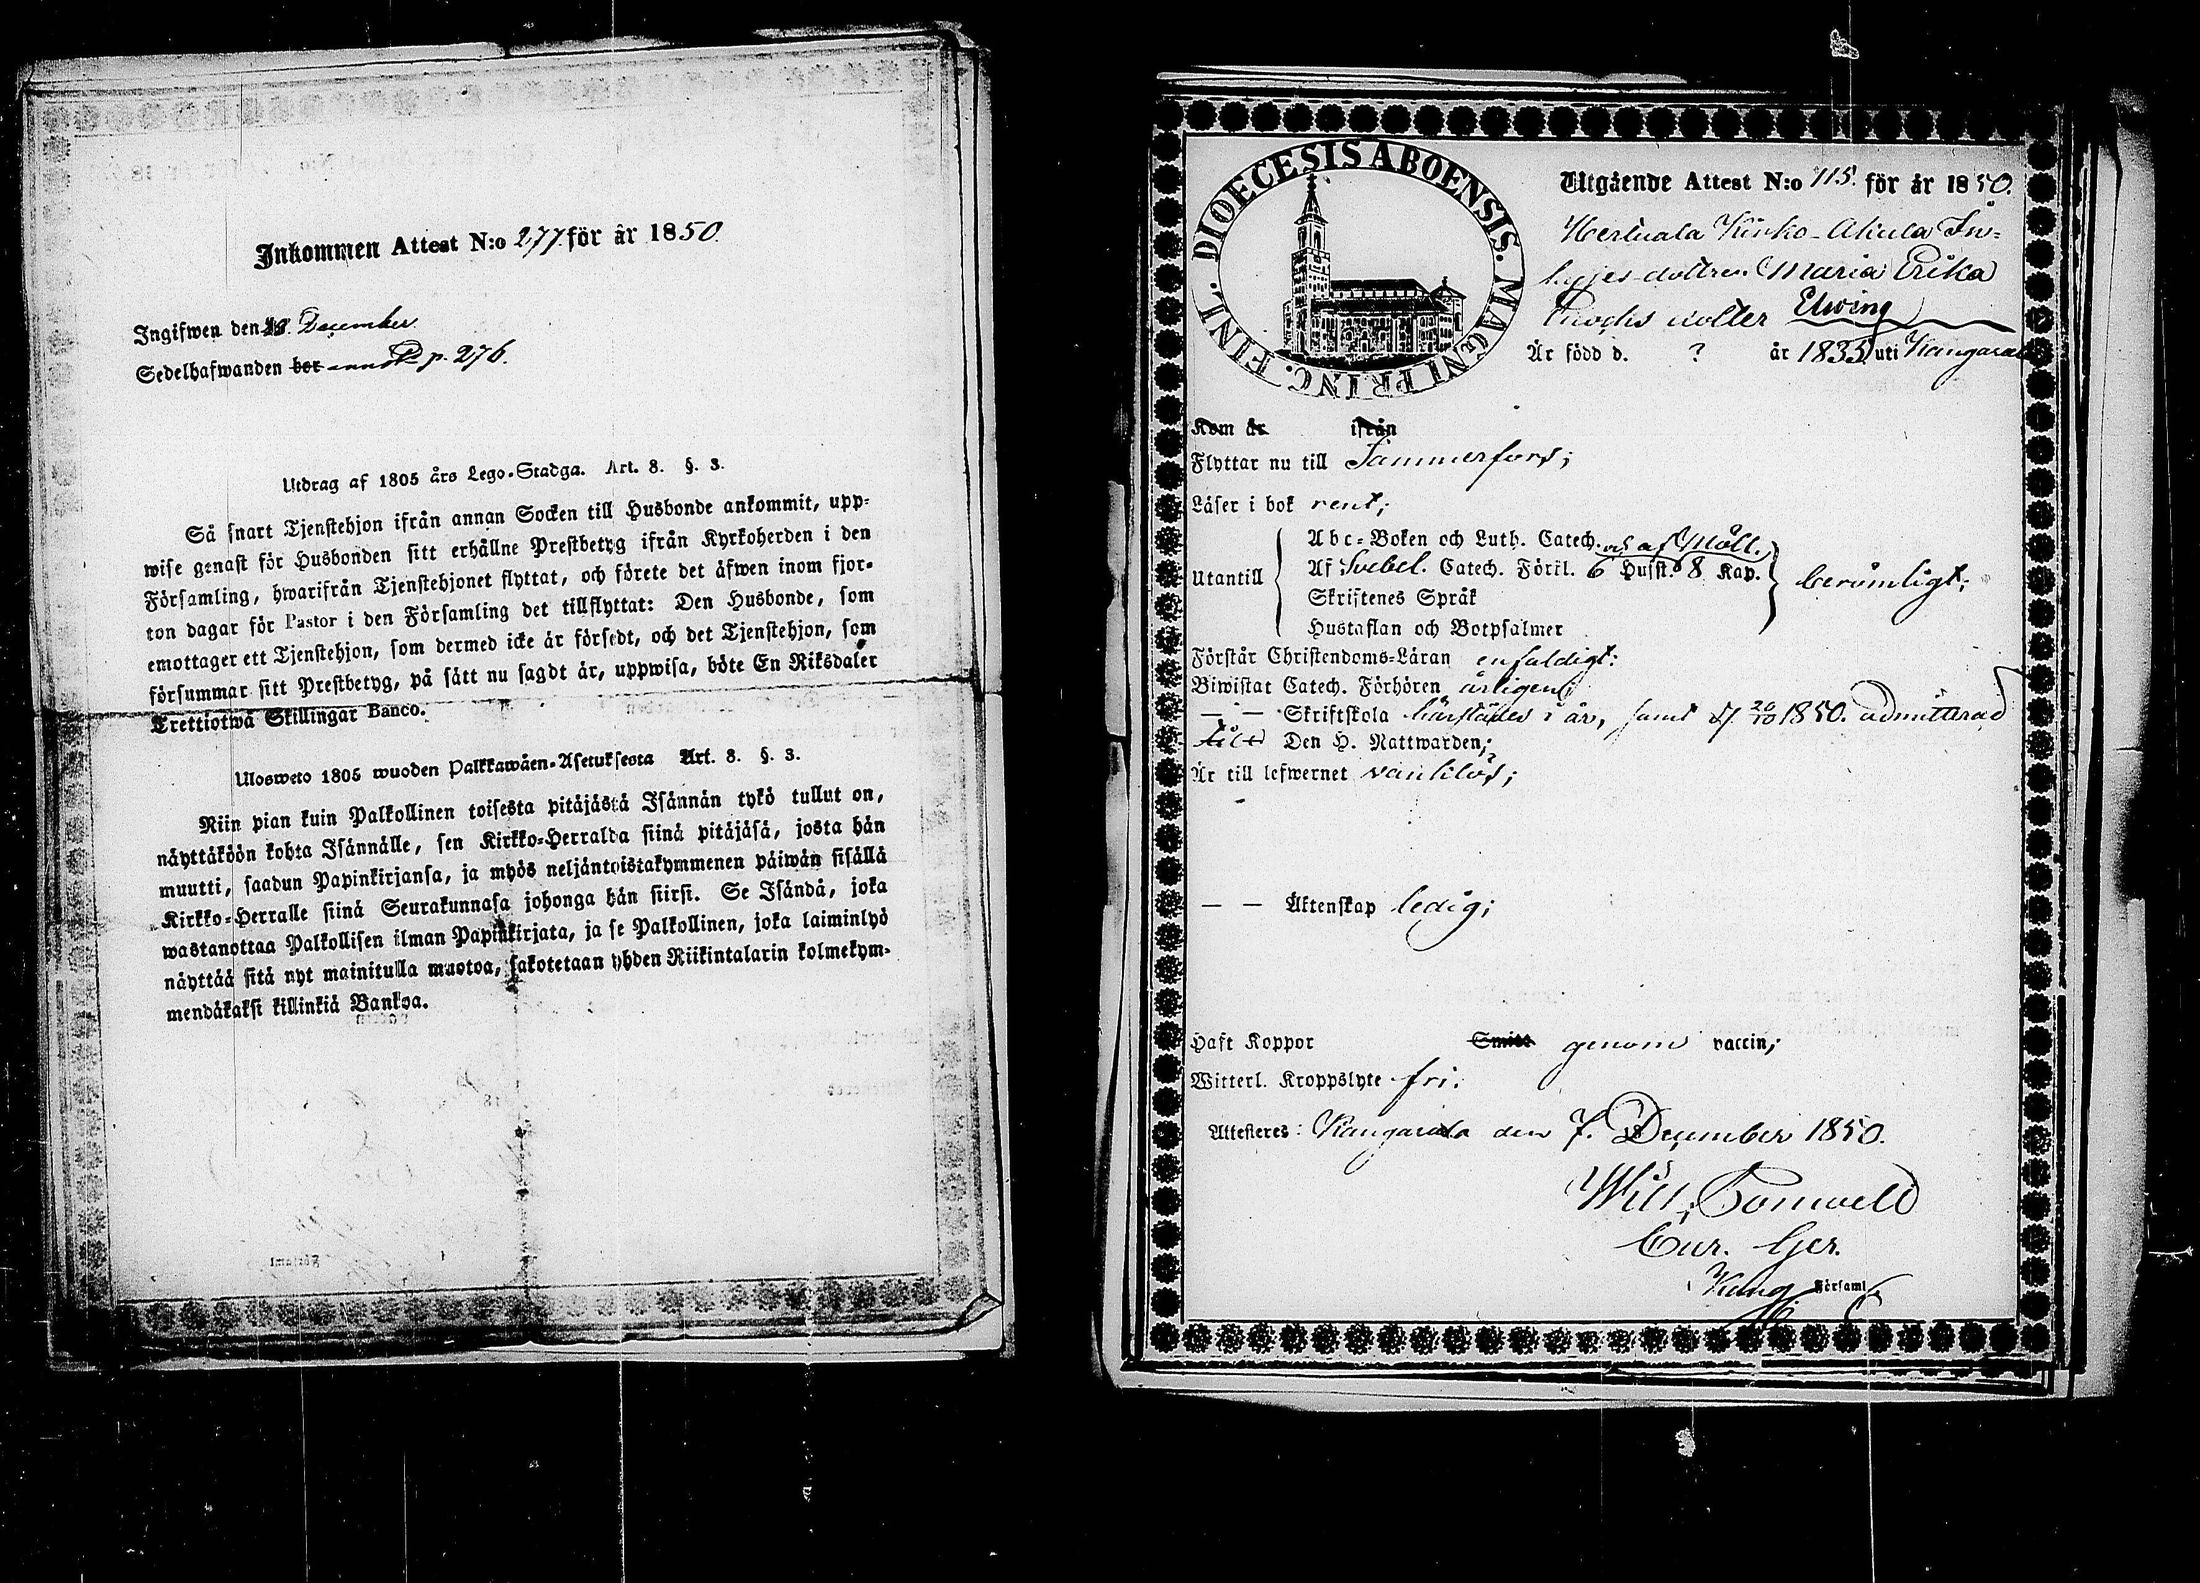 Inkommen Attest N:o 277 för år 1850.
Ingifwen den 18. December
Sedelhafwanden bor annot. p. 276.
Utdrag af 1805 års Lego-Stadga. Art. 8. §. 3.
Så snart Tjenstehjon ifrån annan Socken till Husbonde ankommit, upp-
wise genast för Husbonden sitt erhållne Prestbetyg ifrån Kyrkoherden i den
Församling, hwarifrån Tjenstehjonet flyttat, och förete det äfwen inom fjor-
ton dagar för Pastor i den Församling det tillflyttat: Den Husbonde, som
emottager ett Tjenstehjon, som dermed icke är försedt, och det Tjenstehjon, som
försummar sitt Prestbetyg, på sätt nu sagdt är, uppwisa, böte En Riksdaler
Trettiotwå Skillingar Banco.
Ulosweto 1805 wuoden Palkkawäen-Asetuksesta Art. 8. §. 3.
Niin pian kuin Palkollinen toisesta pitäjästä Isännän tykö tullut on,
näyttäköön kohta Isännälle, sen Kirkko-Herralda siinä pitäjäsä, josta hän
muutti, saadun Papinkirjansa, ja myös neljäntoistakymmenen päiwän sisällä
Kirkko-Herralle siinä Seurakunnasa johonga hän siirsi. Se Isändä, joka
wastanottaa Palkollisen ilman Papinkirjata, ja se Palkollinen, joka laiminlyö
näyttää sitä nyt mainitulla muotoa, sakotetaan yhden Riikintalarin kolmekym-
mendäkaksi killinkiä Bankoa.
DIOECESIS ABOENSIS. MAGNI PRINC. FINL.
Utgående Attest N:o 115. för år 1850.
Hertuala Kirko-Akula In-
hyses dottren Maria Erika
Enochs dotter Elwing
Är född d. ? år 1835 uti Kangasala
Kom år ifrån
Flyttar nu till Tammerfors;
Läser i bok rent;
Utantill
Abc-Boken och Luth. Catech. och af Möll.
Af Svebel. Catech. Förkl. 6 Hufst. 8 Kap.
Skriftenes Språk
Hustaflan och Botpsalmer
berömligt;
Förstår Christendoms-Läran enfaldigt:
Biwistat Catech. Förhören årligen;
— — Skriftskola härstädes i år, samt d. 20/10 1850. admitterad
till Den H. Nattwarden;
Är till lefwernet vanlilös;
— — Äktenskap ledig;
Haft Koppor Smitt genom vaccin;
Witterl. Kroppslyte fri.
Attesteres: Kangasala den 7. December 1850.
Will. Bonweld
Cur. Ger.
Kang Församl.